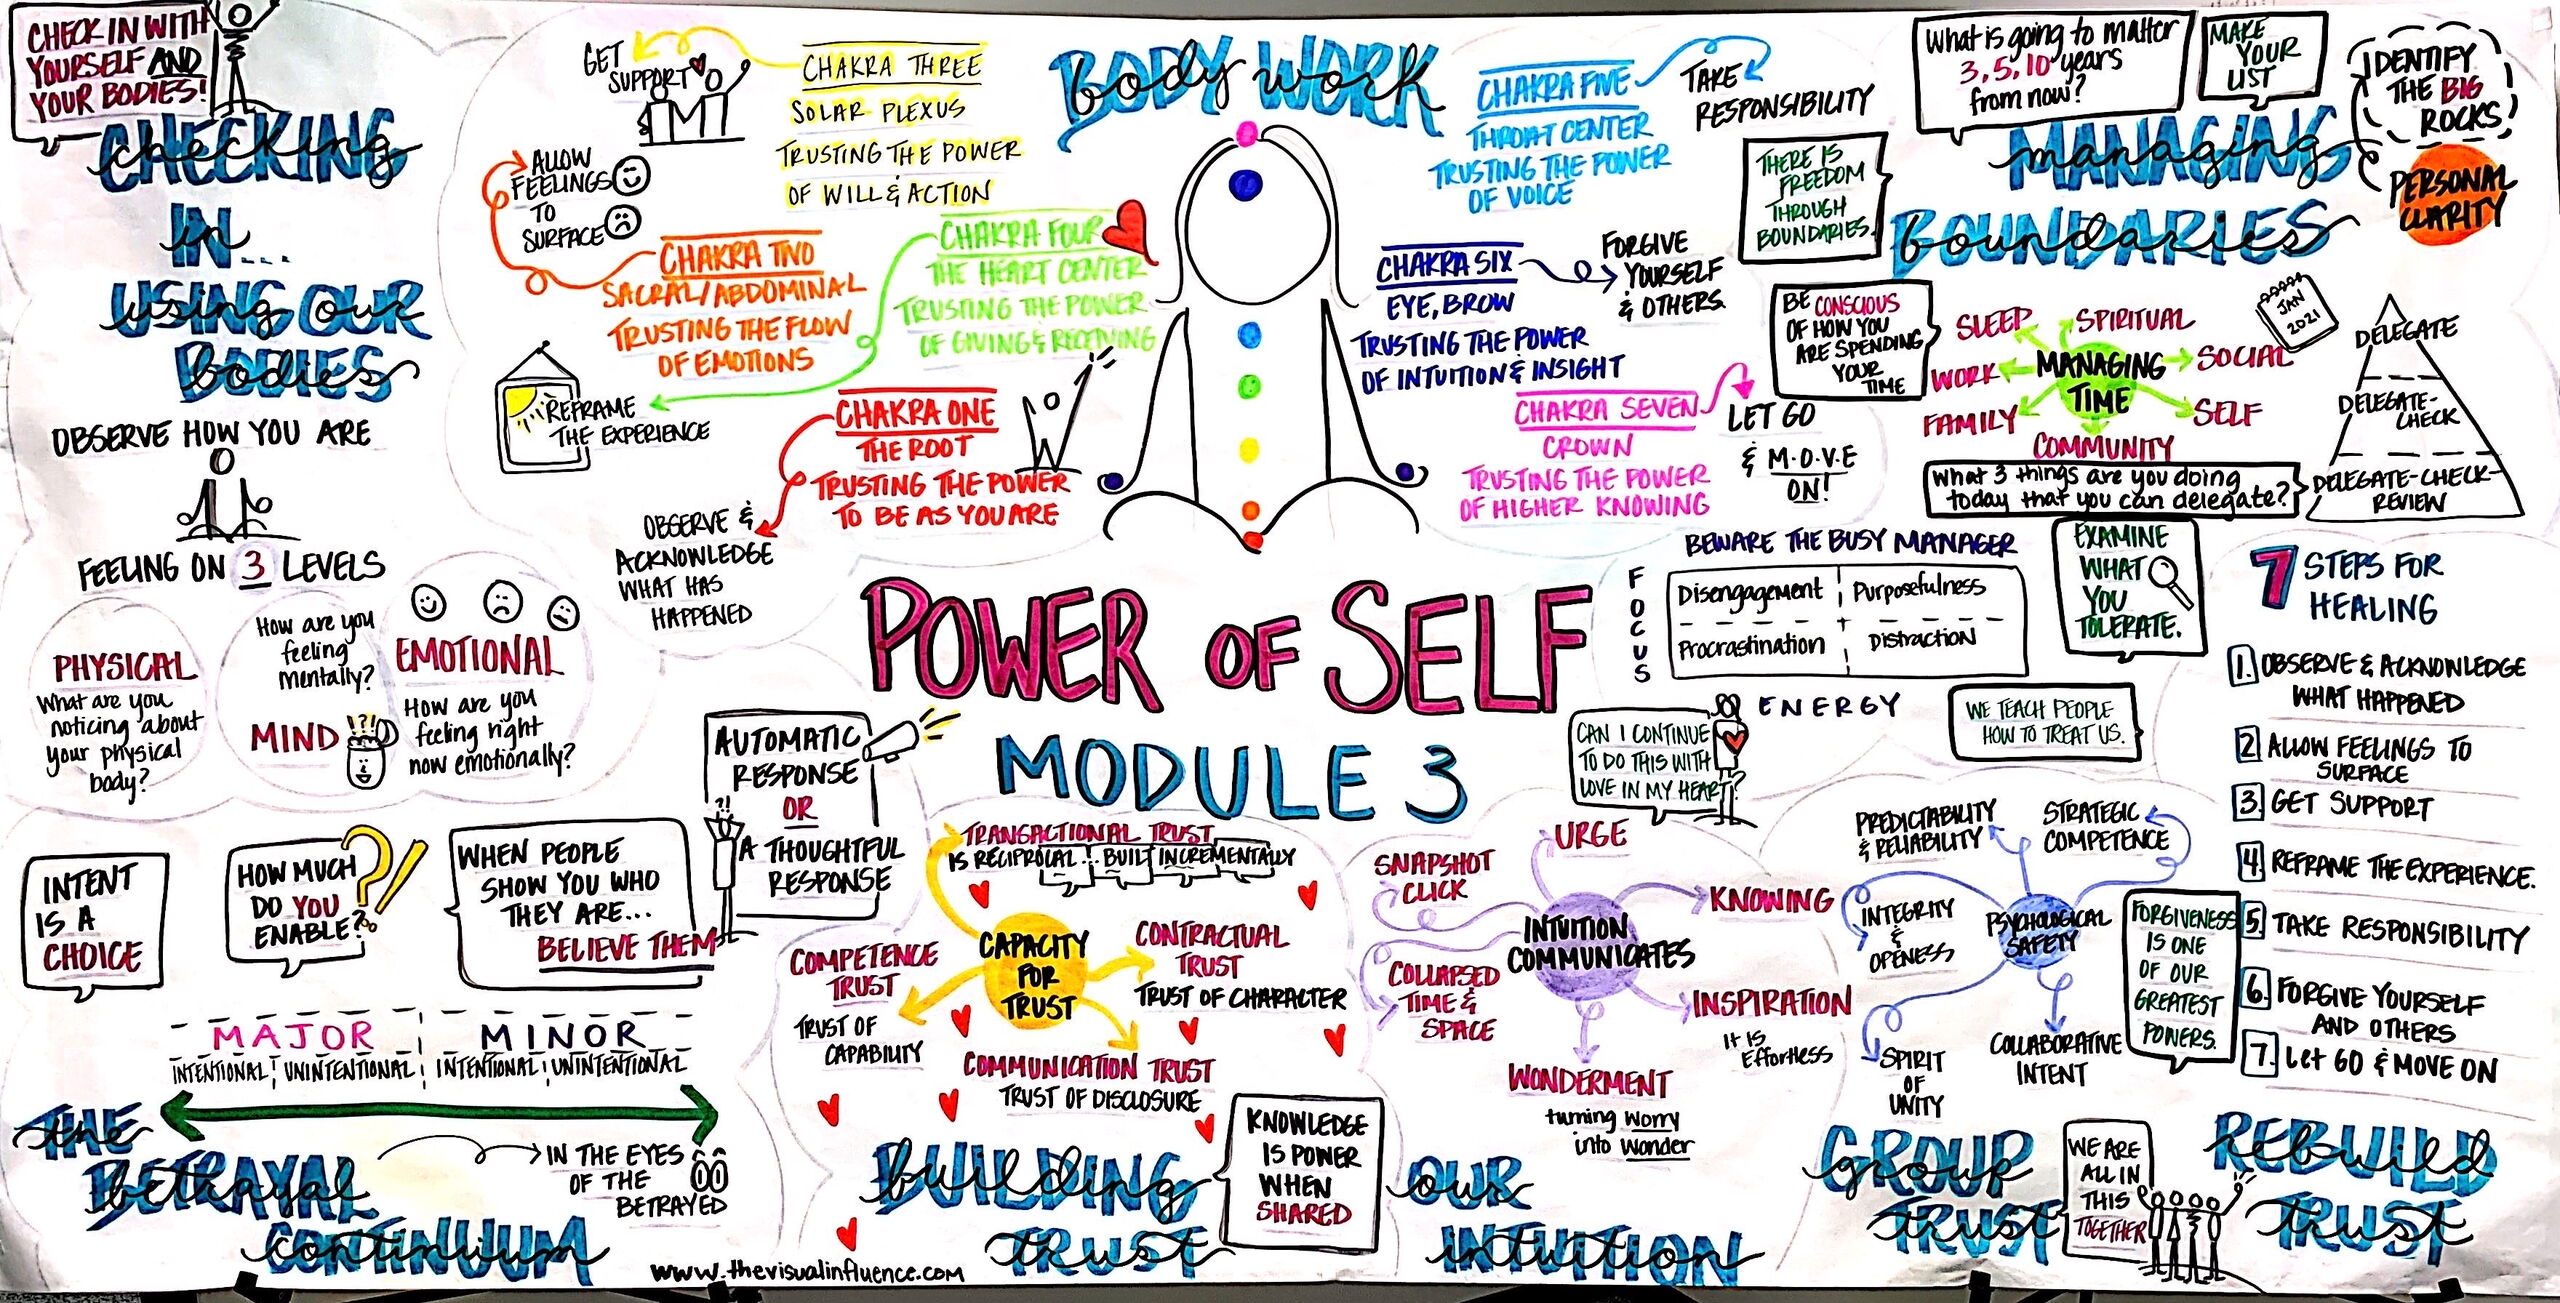 CHECK IN WITH
YOURSELF AND
YOUR BODIES!
CHECKING
IN...
USING OUR
BODIES
OBSERVE HOW YOU ARE
FEELING ON 3 LEVELS
PHYSICAL
What are you
noticing about
your physical
body?
How are you
feeling
mentally?
MIND
?!?!
EMOTIONAL
How are you
feeling right
now emotionally?
BODY WORK
GET
SUPPORT
CHAKRA THREE
SOLAR PLEXUS
TRUSTING THE POWER
OF WILL & ACTION
ALLOW
FEELINGS
TO
SURFACE
CHAKRA TWO
SACRAL/ABDOMINAL
TRUSTING THE FLOW
OF EMOTIONS
CHAKRA FOUR
THE HEART CENTER
TRUSTING THE POWER
OF GIVING & RECEIVING
REFRAME
THE EXPERIENCE
CHAKRA ONE
THE ROOT
TRUSTING THE POWER
TO BE AS YOU ARE
OBSERVE &
ACKNOWLEDGE
WHAT HAS
HAPPENED
CHAKRA FIVE
THROAT CENTER
TRUSTING THE POWER
OF VOICE
TAKE
RESPONSIBILITY
CHAKRA SIX
EYE, BROW
TRUSTING THE POWER
OF INTUITION & INSIGHT
FORGIVE
YOURSELF
& OTHERS.
CHAKRA SEVEN
CROWN
TRUSTING THE POWER
OF HIGHER KNOWING
LET GO
& M.O.V.E
ON!
What is going to matter
3, 5, 10 years
from now?
MAKE
YOUR
LIST
IDENTIFY
THE BIG
ROCKS!
PERSONAL
CLARITY
MANAGING
BOUNDARIES
THERE IS
FREEDOM
THROUGH
BOUNDARIES.
BE CONSCIOUS
OF HOW YOU
ARE SPENDING
YOUR
TIME
MANAGING
TIME
SLEEP
SPIRITUAL
SOCIAL
WORK
SELF
FAMILY
COMMUNITY
JAN
2021
DELEGATE
DELEGATE-
CHECK
DELEGATE-CHECK-
REVIEW
What 3 things are you doing
today that you can delegate?
BEWARE THE BUSY MANAGER
FOCUS
Disengagement
Purposefulness
Procrastination
Distraction
ENERGY
EXAMINE
WHAT
YOU
TOLERATE.
CAN I CONTINUE
TO DO THIS WITH
LOVE IN MY HEART?
WE TEACH PEOPLE
HOW TO TREAT US.
POWER OF SELF
MODULE 3
INTENT
IS A
CHOICE
HOW MUCH
DO YOU
ENABLE?
WHEN PEOPLE
SHOW YOU WHO
THEY ARE...
BELIEVE THEM
AUTOMATIC
RESPONSE
OR
A THOUGHTFUL
RESPONSE
?!
MAJOR
MINOR
INTENTIONAL
UNINTENTIONAL
INTENTIONAL
UNINTENTIONAL
IN THE EYES
OF THE
BETRAYED
THE
BETRAYAL
CONTINUUM
www.thevisualinfluence.com
TRANSACTIONAL TRUST
IS RECIPROCAL... BUILT INCREMENTALLY
CAPACITY
FOR
TRUST
COMPETENCE
TRUST
TRUST OF
CAPABILITY
CONTRACTUAL
TRUST
TRUST OF CHARACTER
COMMUNICATION TRUST
TRUST OF DISCLOSURE
BUILDING
TRUST
KNOWLEDGE
IS POWER
WHEN
SHARED
INTUITION
COMMUNICATES
SNAPSHOT
CLICK
URGE
KNOWING
COLLAPSED
TIME &
SPACE
INSPIRATION
It is
Effortless
WONDERMENT
turning worry
into wonder
OUR
INTUITION
PSYCHOLOGICAL
SAFETY
PREDICTABILITY
& RELIABILITY
STRATEGIC
COMPETENCE
INTEGRITY
&
OPENESS
SPIRIT
OF
UNITY
COLLABORATIVE
INTENT
GROUP
TRUST
FORGIVENESS
IS ONE
OF OUR
GREATEST
POWERS.
WE ARE
ALL IN
THIS
TOGETHER
7 STEPS FOR
HEALING
1. OBSERVE & ACKNOWLEDGE
WHAT HAPPENED
2 ALLOW FEELINGS TO
SURFACE
3. GET SUPPORT
4. REFRAME THE EXPERIENCE.
5. TAKE RESPONSIBILITY
6. FORGIVE YOURSELF
AND OTHERS
7. Let GO & MOVE ON
REBUILD
TRUST